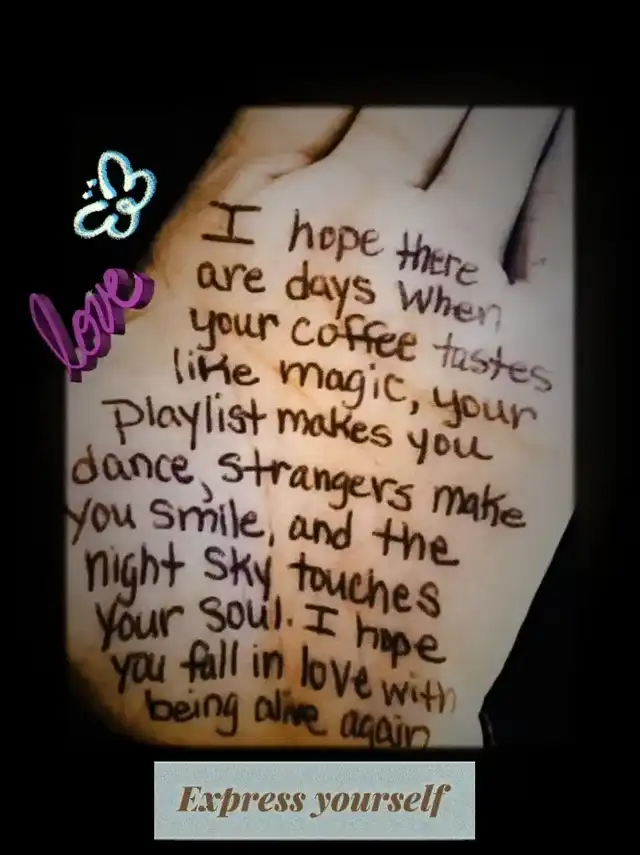 love
I hope there
are days when
your coffee tastes
like magic, your
playlist makes you
dance, strangers make
you smile, and the
night sky touches
your soul. I hope
you fall in love with
being alive again
Express yourself